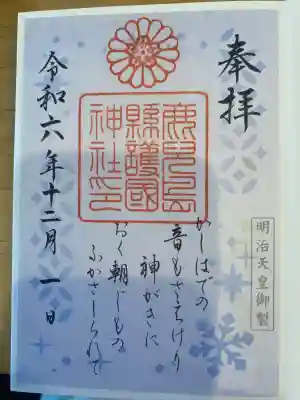 奉拝
鹿兒島
縣護國
神社印
明治天皇御製
かしはでの
音もさえけり
神がきに
おく朝じもの
ふかさしられて
令和六年十二月一日